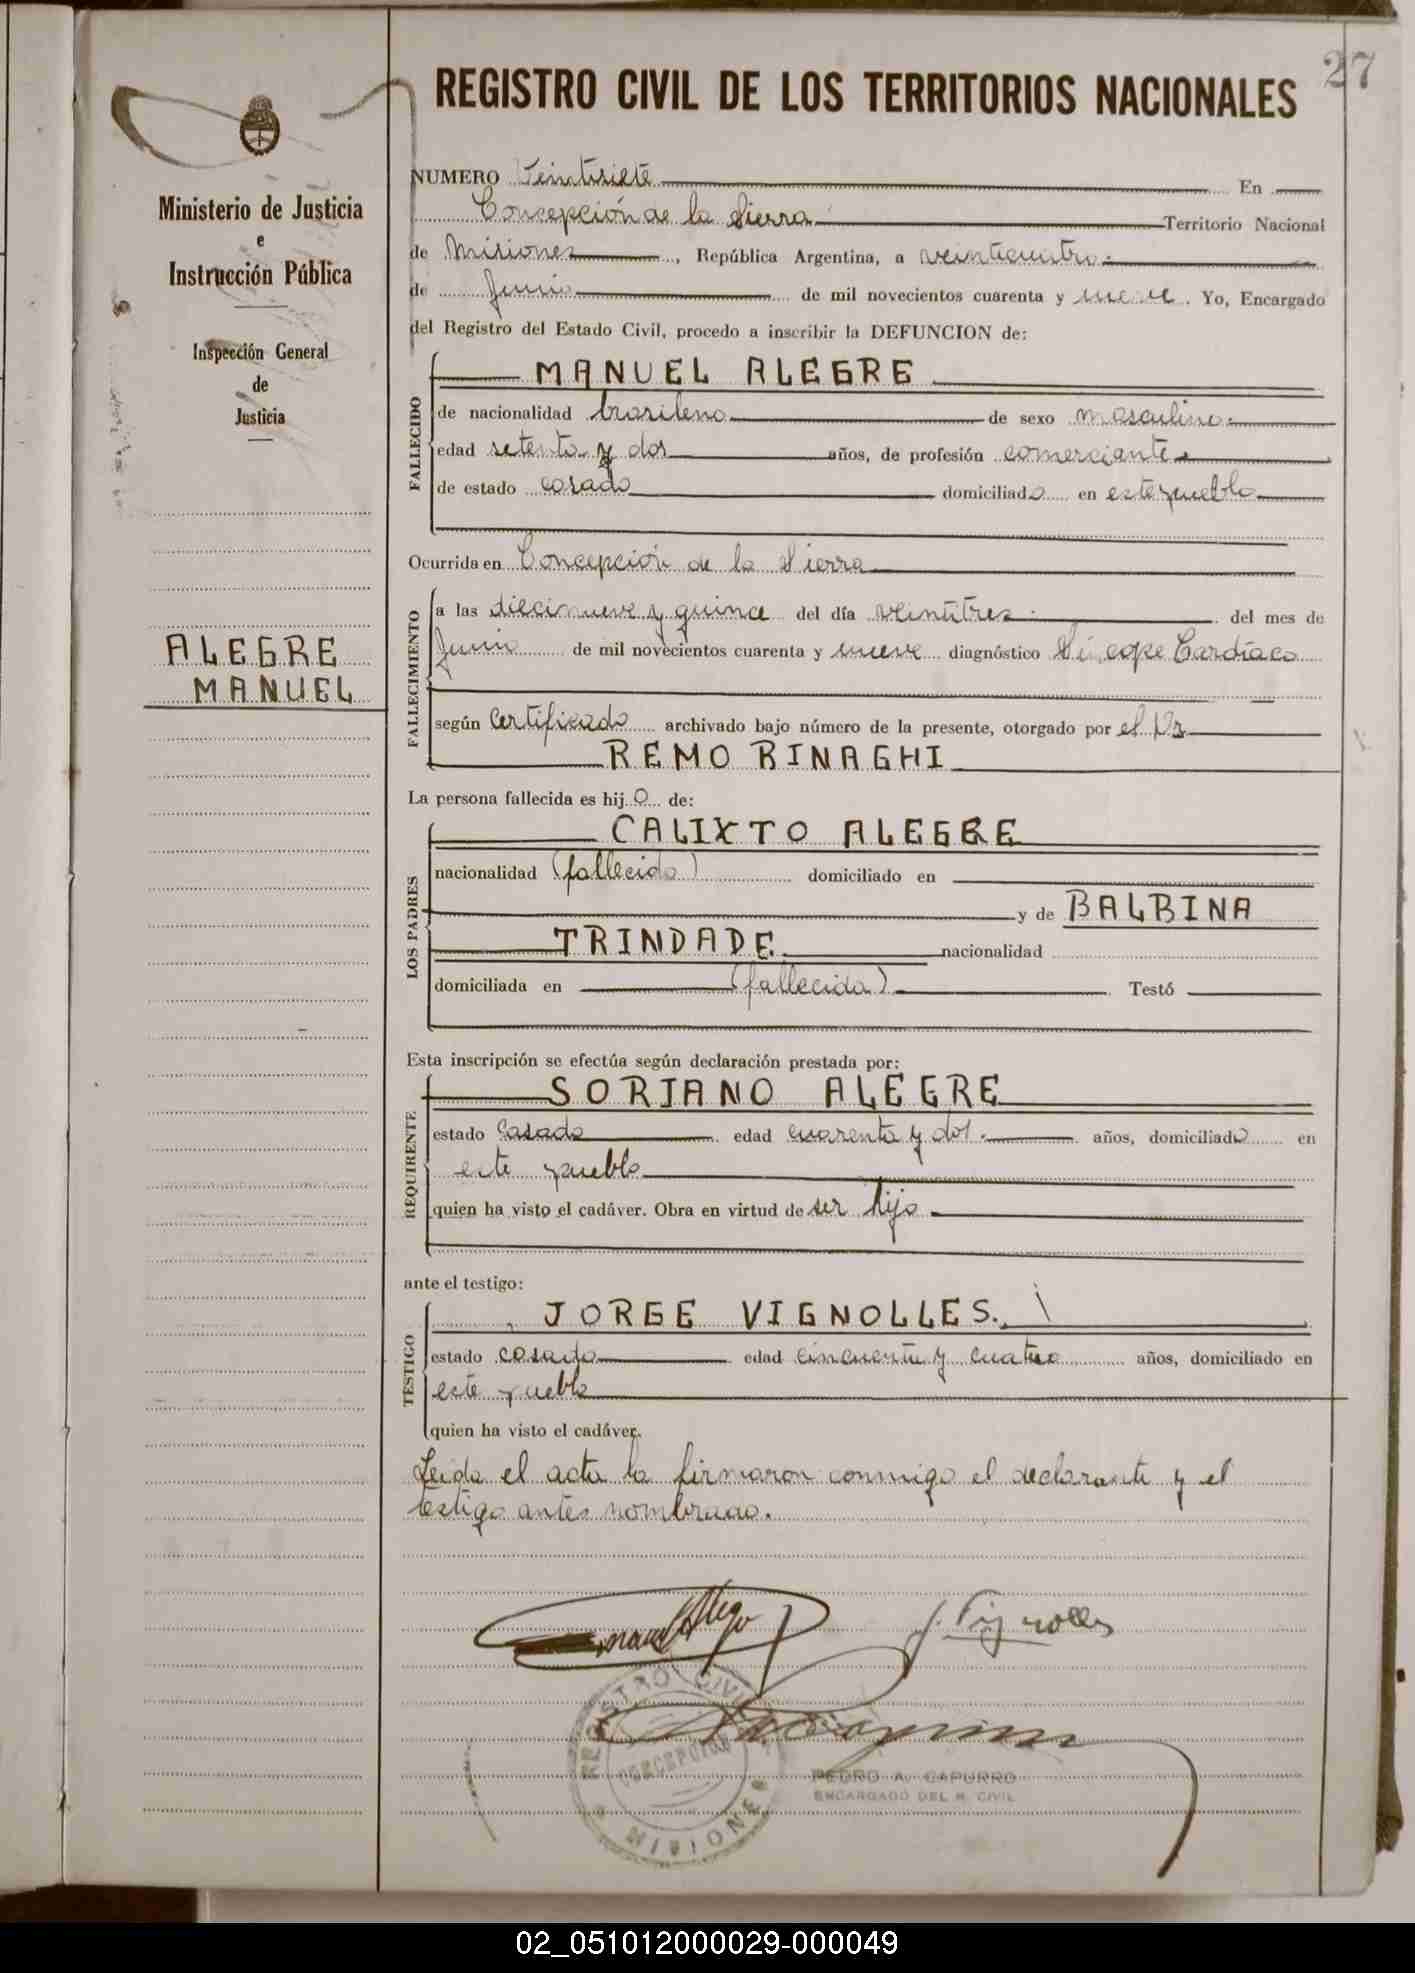 27
REGISTRO CIVIL DE LOS TERRITORIOS NACIONALES
Ministerio de Justicia
e
Instrucción Pública
Inspección General
de
Justicia
ALEGRE
MANUEL
NUMERO Veintisiete En
Concepción de la Sierra Territorio Nacional
de Misiones, República Argentina, a veinticuatro
de Junio de mil novecientos cuarenta y nueve. Yo, Encargado
del Registro del Estado Civil, procedo a inscribir la DEFUNCION de:
FALLECIDO
MANUEL ALEGRE
de nacionalidad brasileno de sexo masculino
edad setenta y dos años, de profesión comerciante
de estado casado domiciliado en este pueblo
Ocurrida en Concepción de la Sierra
FALLECIMIENTO
a las diecinueve y quince del día veintitres del mes de
Junio de mil novecientos cuarenta y nueve diagnóstico Síncope Cardíaco
según Certificado archivado bajo número de la presente, otorgado por el Dr
REMO RINAGHI
La persona fallecida es hijo de:
LOS PADRES
CALIXTO ALEGRE
nacionalidad (fallecido) domiciliado en
y de BALBINA
TRINDADE nacionalidad
domiciliada en (fallecida) Testó
Esta inscripción se efectúa según declaración prestada por:
REQUIRENTE
SORIANO ALEGRE
estado Casado edad cuarenta y dos años, domiciliado en
este pueblo
quien ha visto el cadáver. Obra en virtud de ser hijo
ante el testigo:
TESTIGO
JORGE VIGNOLLES.
estado casado edad cincuenta y cuatro años, domiciliado en
este pueblo
quien ha visto el cadáver.
Leida el acta la firmaron conmigo el declarante y el
testigo antes nombrado.
J. Vignolles
REGISTRO CIVIL
CONCEPCIÓN
MISIONES
PEDRO A. CAPURRO
ENCARGADO DEL R. CIVIL
02_051012000029-000049